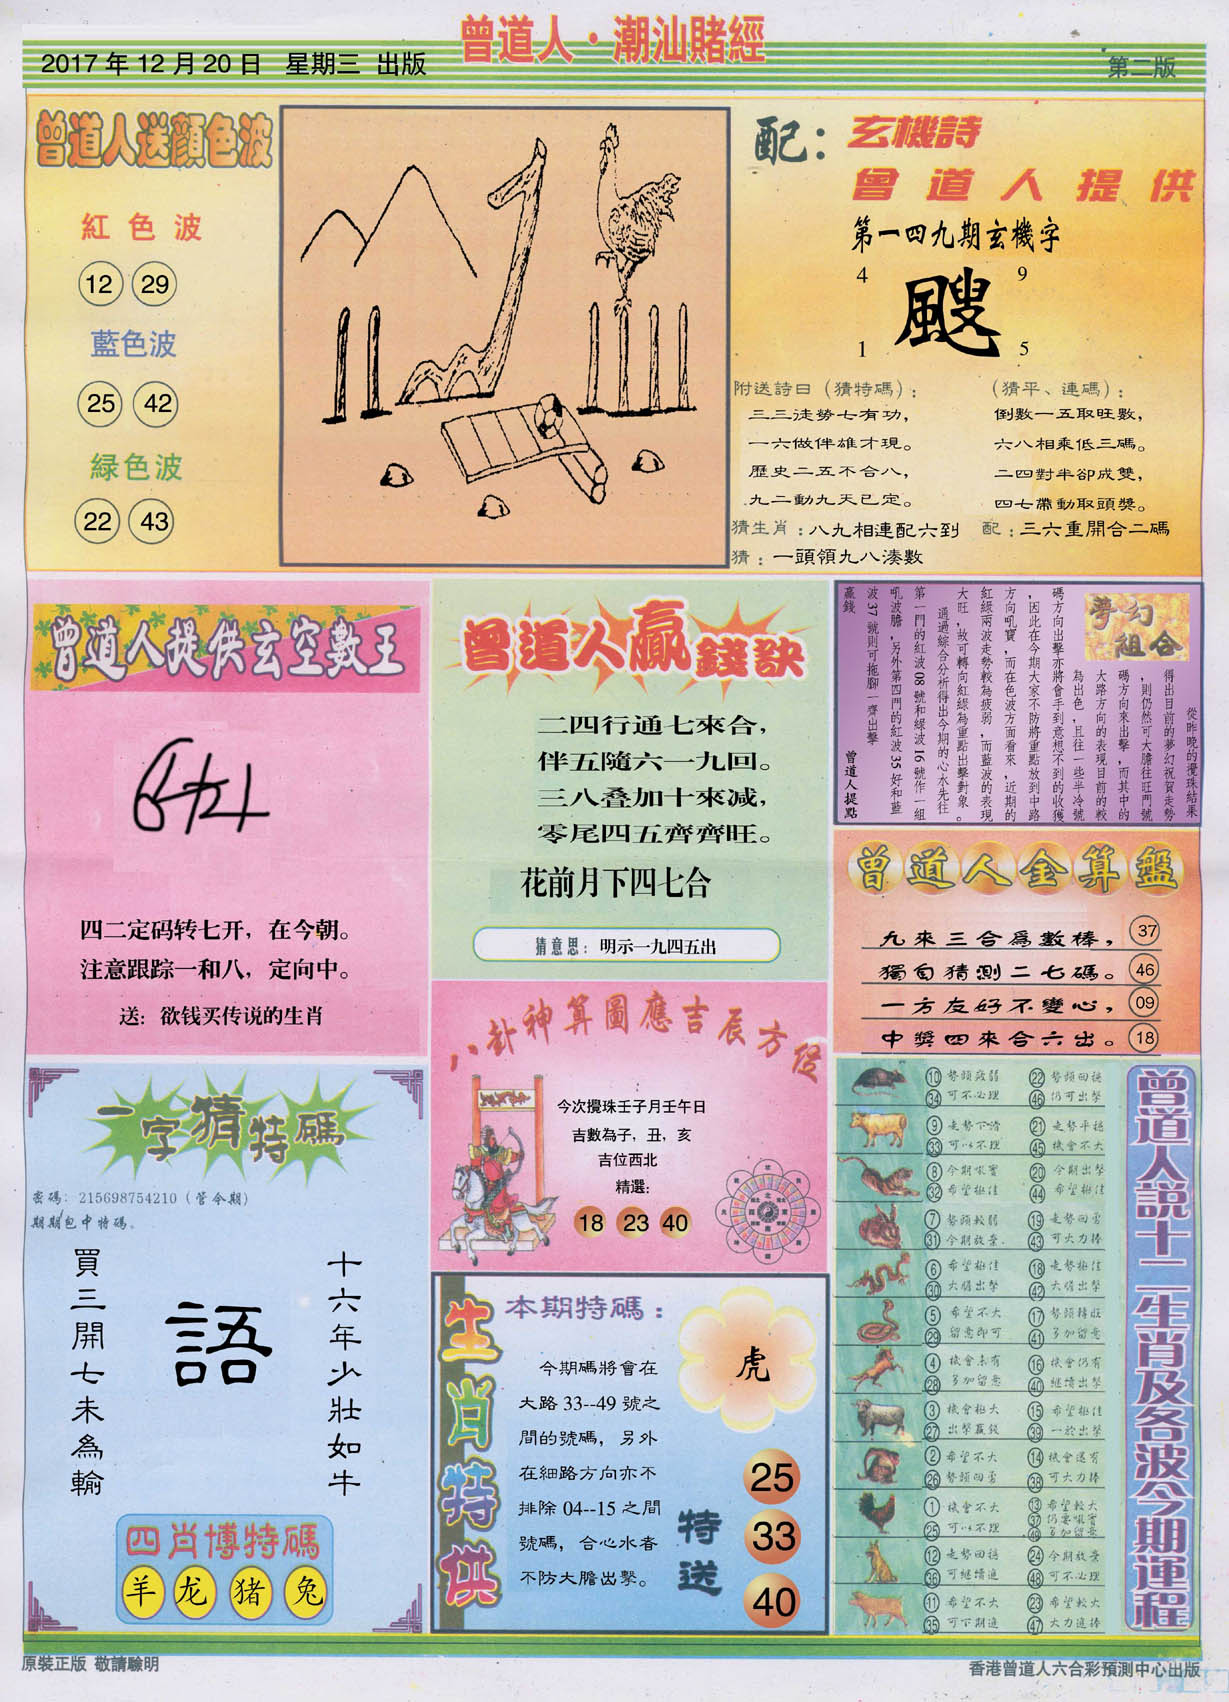 曾道人·潮汕賭經
2017年12月20日 星期三 出版
第二版
曾道人送顏色波
紅色波
12 29
藍色波
25 42
緑色波
22 43
配：玄機詩
曾道人提供
第一四九期玄機字
4 9
颼
1 5
附送詩曰（猜特碼）：
三三徒勞七有功，
一六做伴雄才現。
歷史二五不合八，
九二動九天已定。
（猜平、連碼）：
倒數一五取旺數，
六八相乘低三碼。
二四對半卻成雙，
四七帶動取頭獎。
猜生肖：八九相連配六到
配：三六重開合二碼
猜：一頭領九八湊數
曾道人提供玄空數王
四二定码转七开，在今朝。
注意跟踪一和八，定向中。
送：欲钱买传说的生肖
曾道人贏錢訣
二四行通七來合，
伴五隨六一九回。
三八叠加十來减，
零尾四五齊齊旺。
花前月下四七合
猜意思：明示一九四五出
夢幻組合
從昨晚的攪珠結果
得出目前的夢幻祝賀走勢
，則仍然可大膽往旺門號
碼方向來出擊，而其中的
大路方向的表現目前的較
為出色，且往一些半冷號
碼方向出擊亦將會手到意想不到的收獲
，因此在今期大家不防將重點放到中路
方向吼寶，而在色波方面看來，近期的
紅綠兩波走勢較為疲弱，而藍波的表現
大旺，故可轉向紅綠為重點出擊對象。
通過綜合分析得出今期的心水先往
第一門的紅波08號和綠波16號作一組
吼波膽，另外第四門的紅波35好和藍
波37號則可拖腳一齊出擊
贏錢 曾道人提點
曾道人金算盤
九來三合爲數棒， 37
獨自猜測二七碼。 46
一方友好不變心， 09
中獎四來合六出。 18
八卦神算圖應吉辰方位
今次攪珠壬子月壬午日
吉數為子，丑，亥
吉位西北
精選：
18 23 40
一字猜特碼
密碼：215698754210（管今期）
期期包中特碼。
十六年少壯如牛
語
買三開七未為輸
四肖博特碼
羊 龙 猪 兔
生肖特供
本期特碼：
虎
今期碼將會在
大路33--49號之
間的號碼，另外
在細路方向亦不
排除04--15之間
號碼，合心水者
不防大膽出擊。
特送
25
33
40
曾道人説十二生肖及各波今期運程
10 勢頭疲弱 22 勢頭回穩
34 可不必理 46 仍可出擊
9 走勢下滑 21 走勢平穩
33 可以不理 45 機會不大
8 今期吼寶 20 今期出擊
32 希望極佳 44 希望極佳
7 勢頭較弱 19 走勢回勇
31 今期放棄. 43 可大力捧
6 希望極佳 18 走勢極佳
30 大膽出擊 42 大膽出擊
5 希望不大 17 勢頭轉旺
29 留意即可 41 多加留意
4 機會未有 16 機會仍有
28 多加留意 40 繼續出擊
3 機會極大 15 希望極佳
27 出擊贏錢 39 一於出擊
2 希望不大 14 機會還有
26 勢頭回勇 38 可大力捧
1 機會不大 13 希望較大
25 可以不理 37 仍要吼寶
49 多加留意
12 走勢回穩 24 今期放棄
36 可繼續追 48 可不必理
11 希望不大 23 希望較大
35 可下期追 47 大力追捧
原裝正版 敬請驗明
香港曾道人六合彩預測中心出版